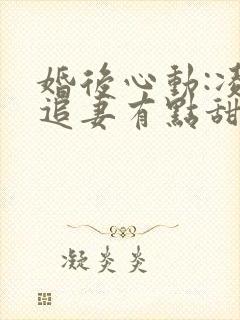 婚後心動:凌
追妻有點甜
凝炎炎